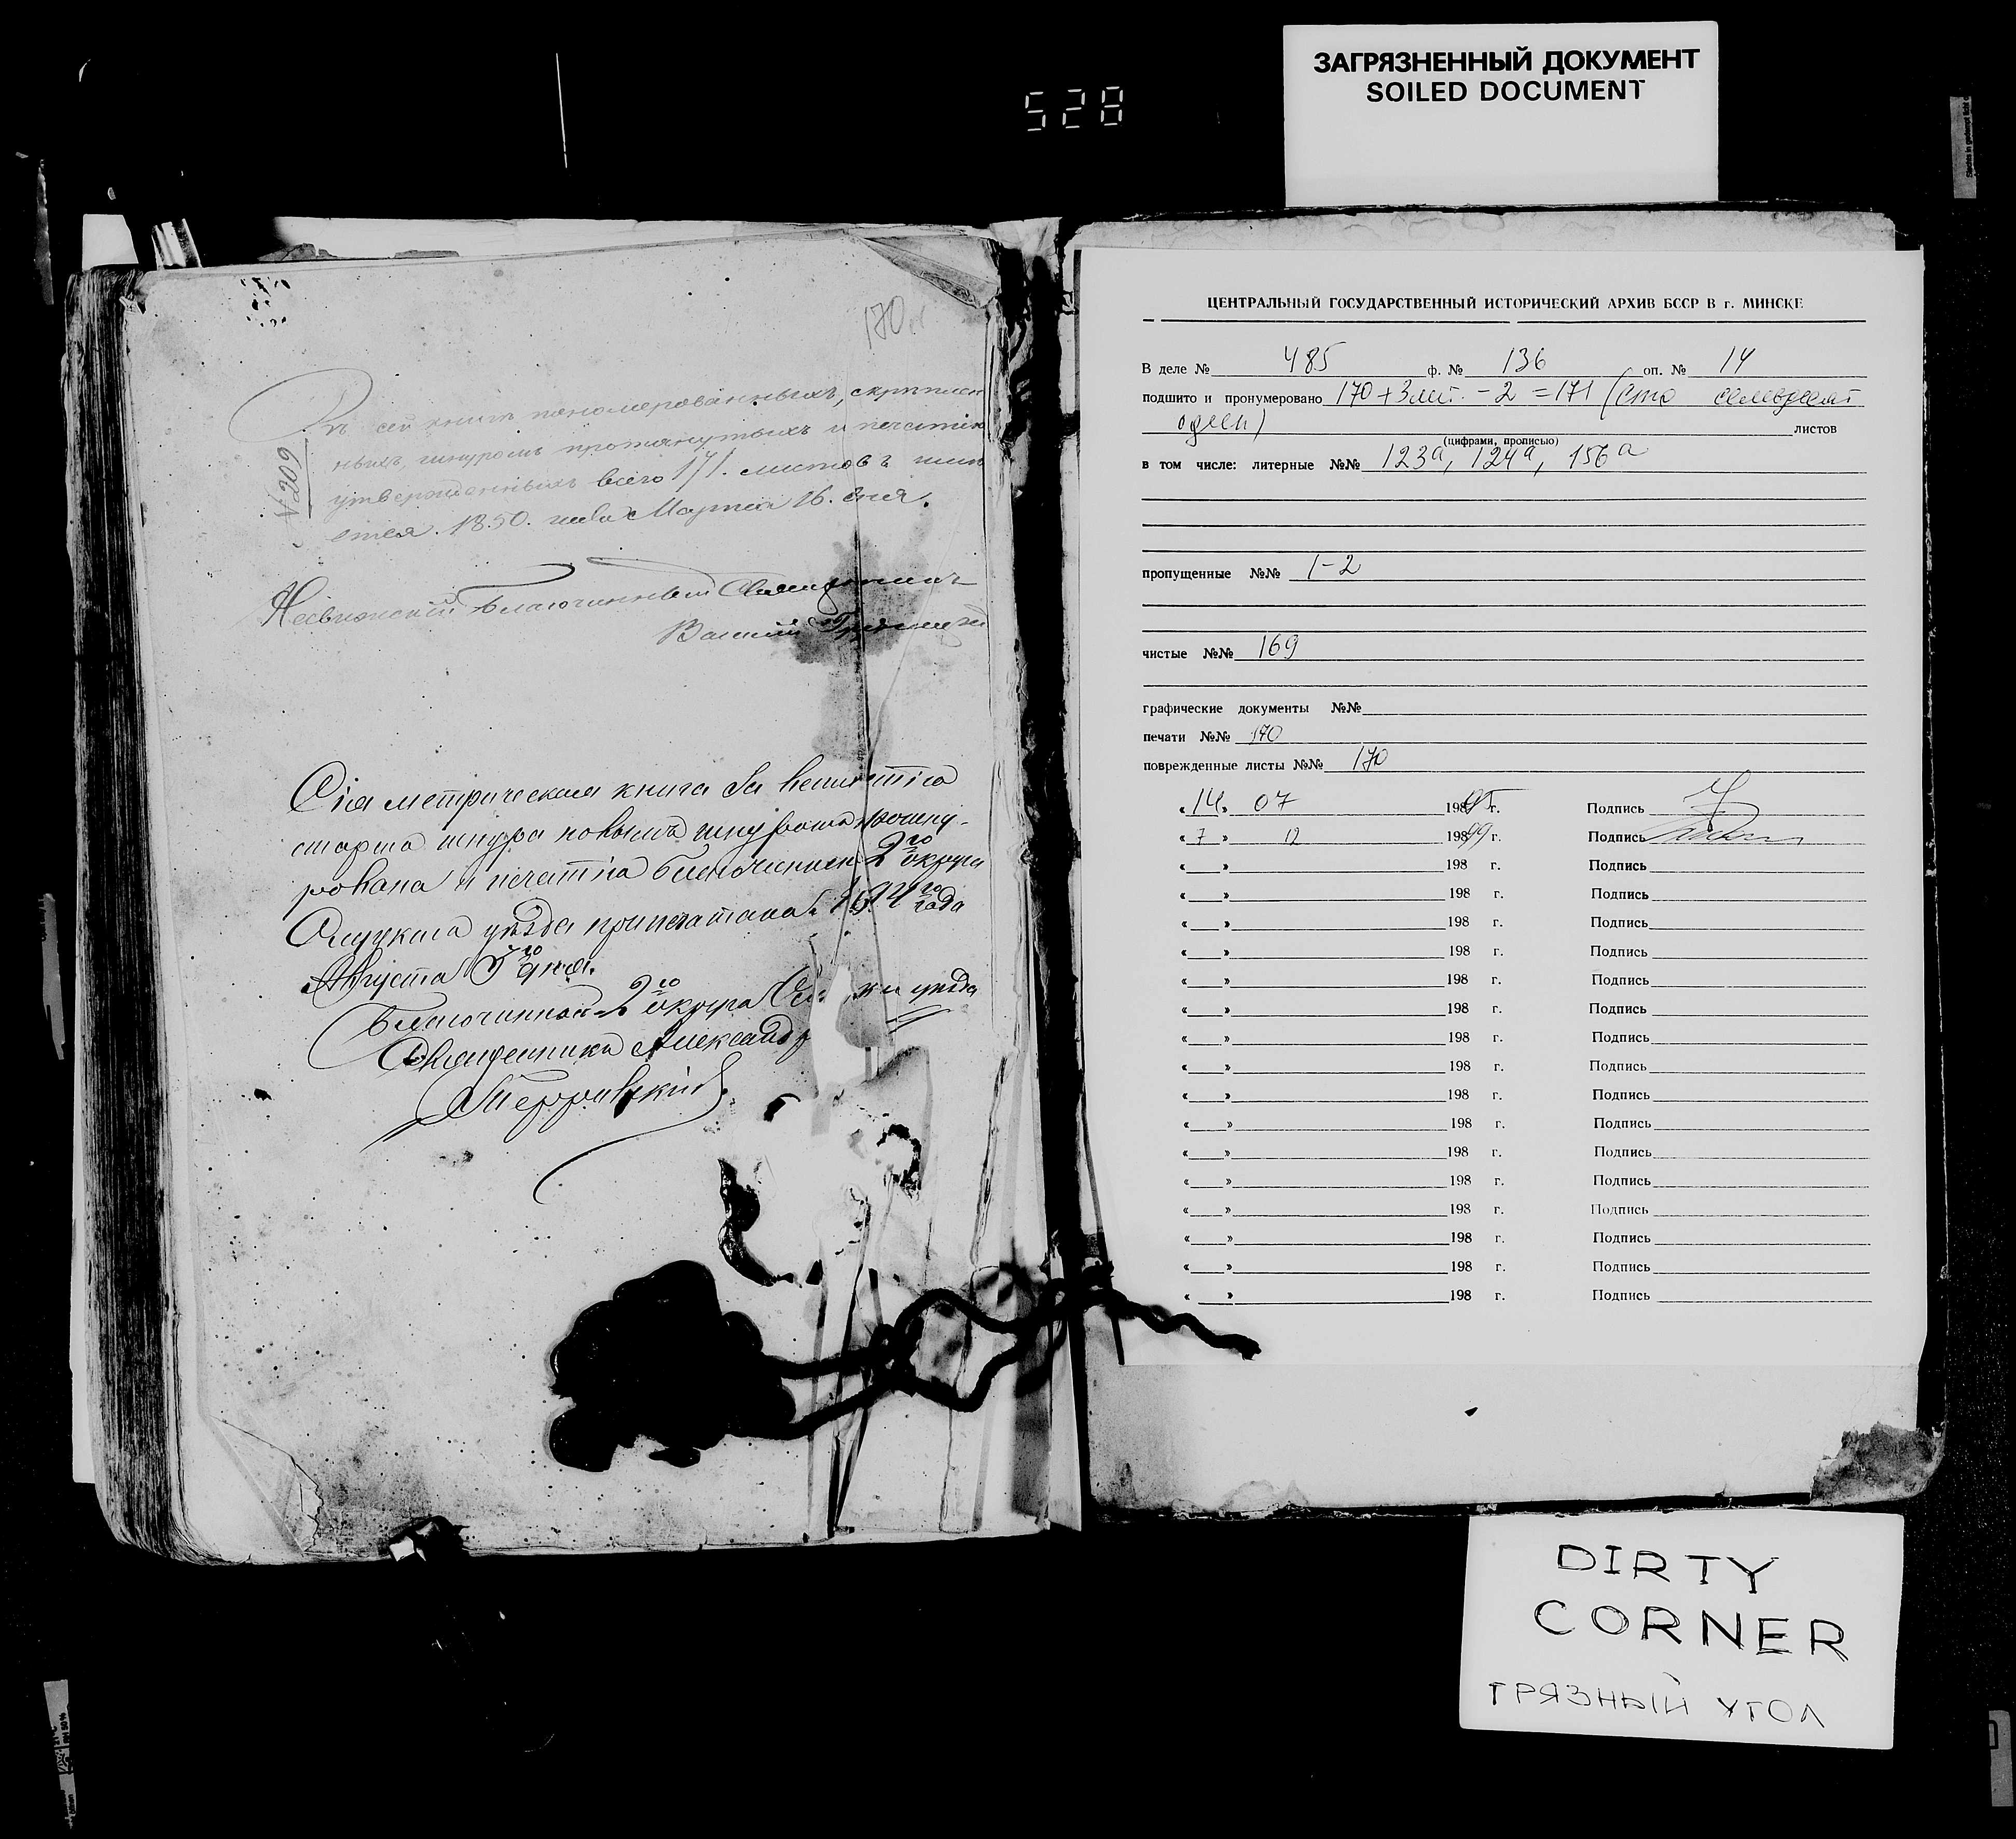 528
ЗАГРЯЗНЕННЫЙ ДОКУМЕНТ
SOILED DOCUMENT
170
Въ сей книгѣ пономерованныхъ, скрѣплен
ныхъ, шнуромъ протянутыхъ и печатію
утвержденныхъ всего 171. листовъ
ется. 1850. года Марта 16. дня.
Несвижскій Благочинный Священникъ
Василій
Сія метрическая книга за ветхостію
стараго шнура новымъ шнуромъ прошну-
рована и печатію Благочиннаго 2го округа
Слуцкаго уѣзда припечатана. го года
Августа дня.
Благочинный 2го округа уѣзда
Священникъ Александръ
ЦЕНТРАЛЬНЫЙ ГОСУДАРСТВЕННЫЙ ИСТОРИЧЕСКИЙ АРХИВ БССР В г. МИНСКЕ
В деле № 485 ф. № 136 оп. № 14
подшито и пронумеровано 170 + 3 лит. - 2 = 171 (сто семьдесят
один) листов
(цифрами, прописью)
в том числе: литерные №№ 123а, 124а, 156а
пропущенные №№ 1-2
чистые №№ 169
графические документы №№
печати №№ 170
поврежденные листы №№ 170
« 14 » 07 1985 г. Подпись
« 7 » 12 19899 г. Подпись
« » 198 г. Подпись
« » 198 г. Подпись
« » 198 г. Подпись
« » 198 г. Подпись
« » 198 г. Подпись
« » 198 г. Подпись
« » 198 г. Подпись
« » 198 г. Подпись
« » 198 г. Подпись
« » 198 г. Подпись
« » 198 г. Подпись
« » 198 г. Подпись
« » 198 г. Подпись
« » 198 г. Подпись
« » 198 г. Подпись
« » 198 г. Подпись
DIRTY
CORNER
ГРЯЗНЫЙ УГОЛ